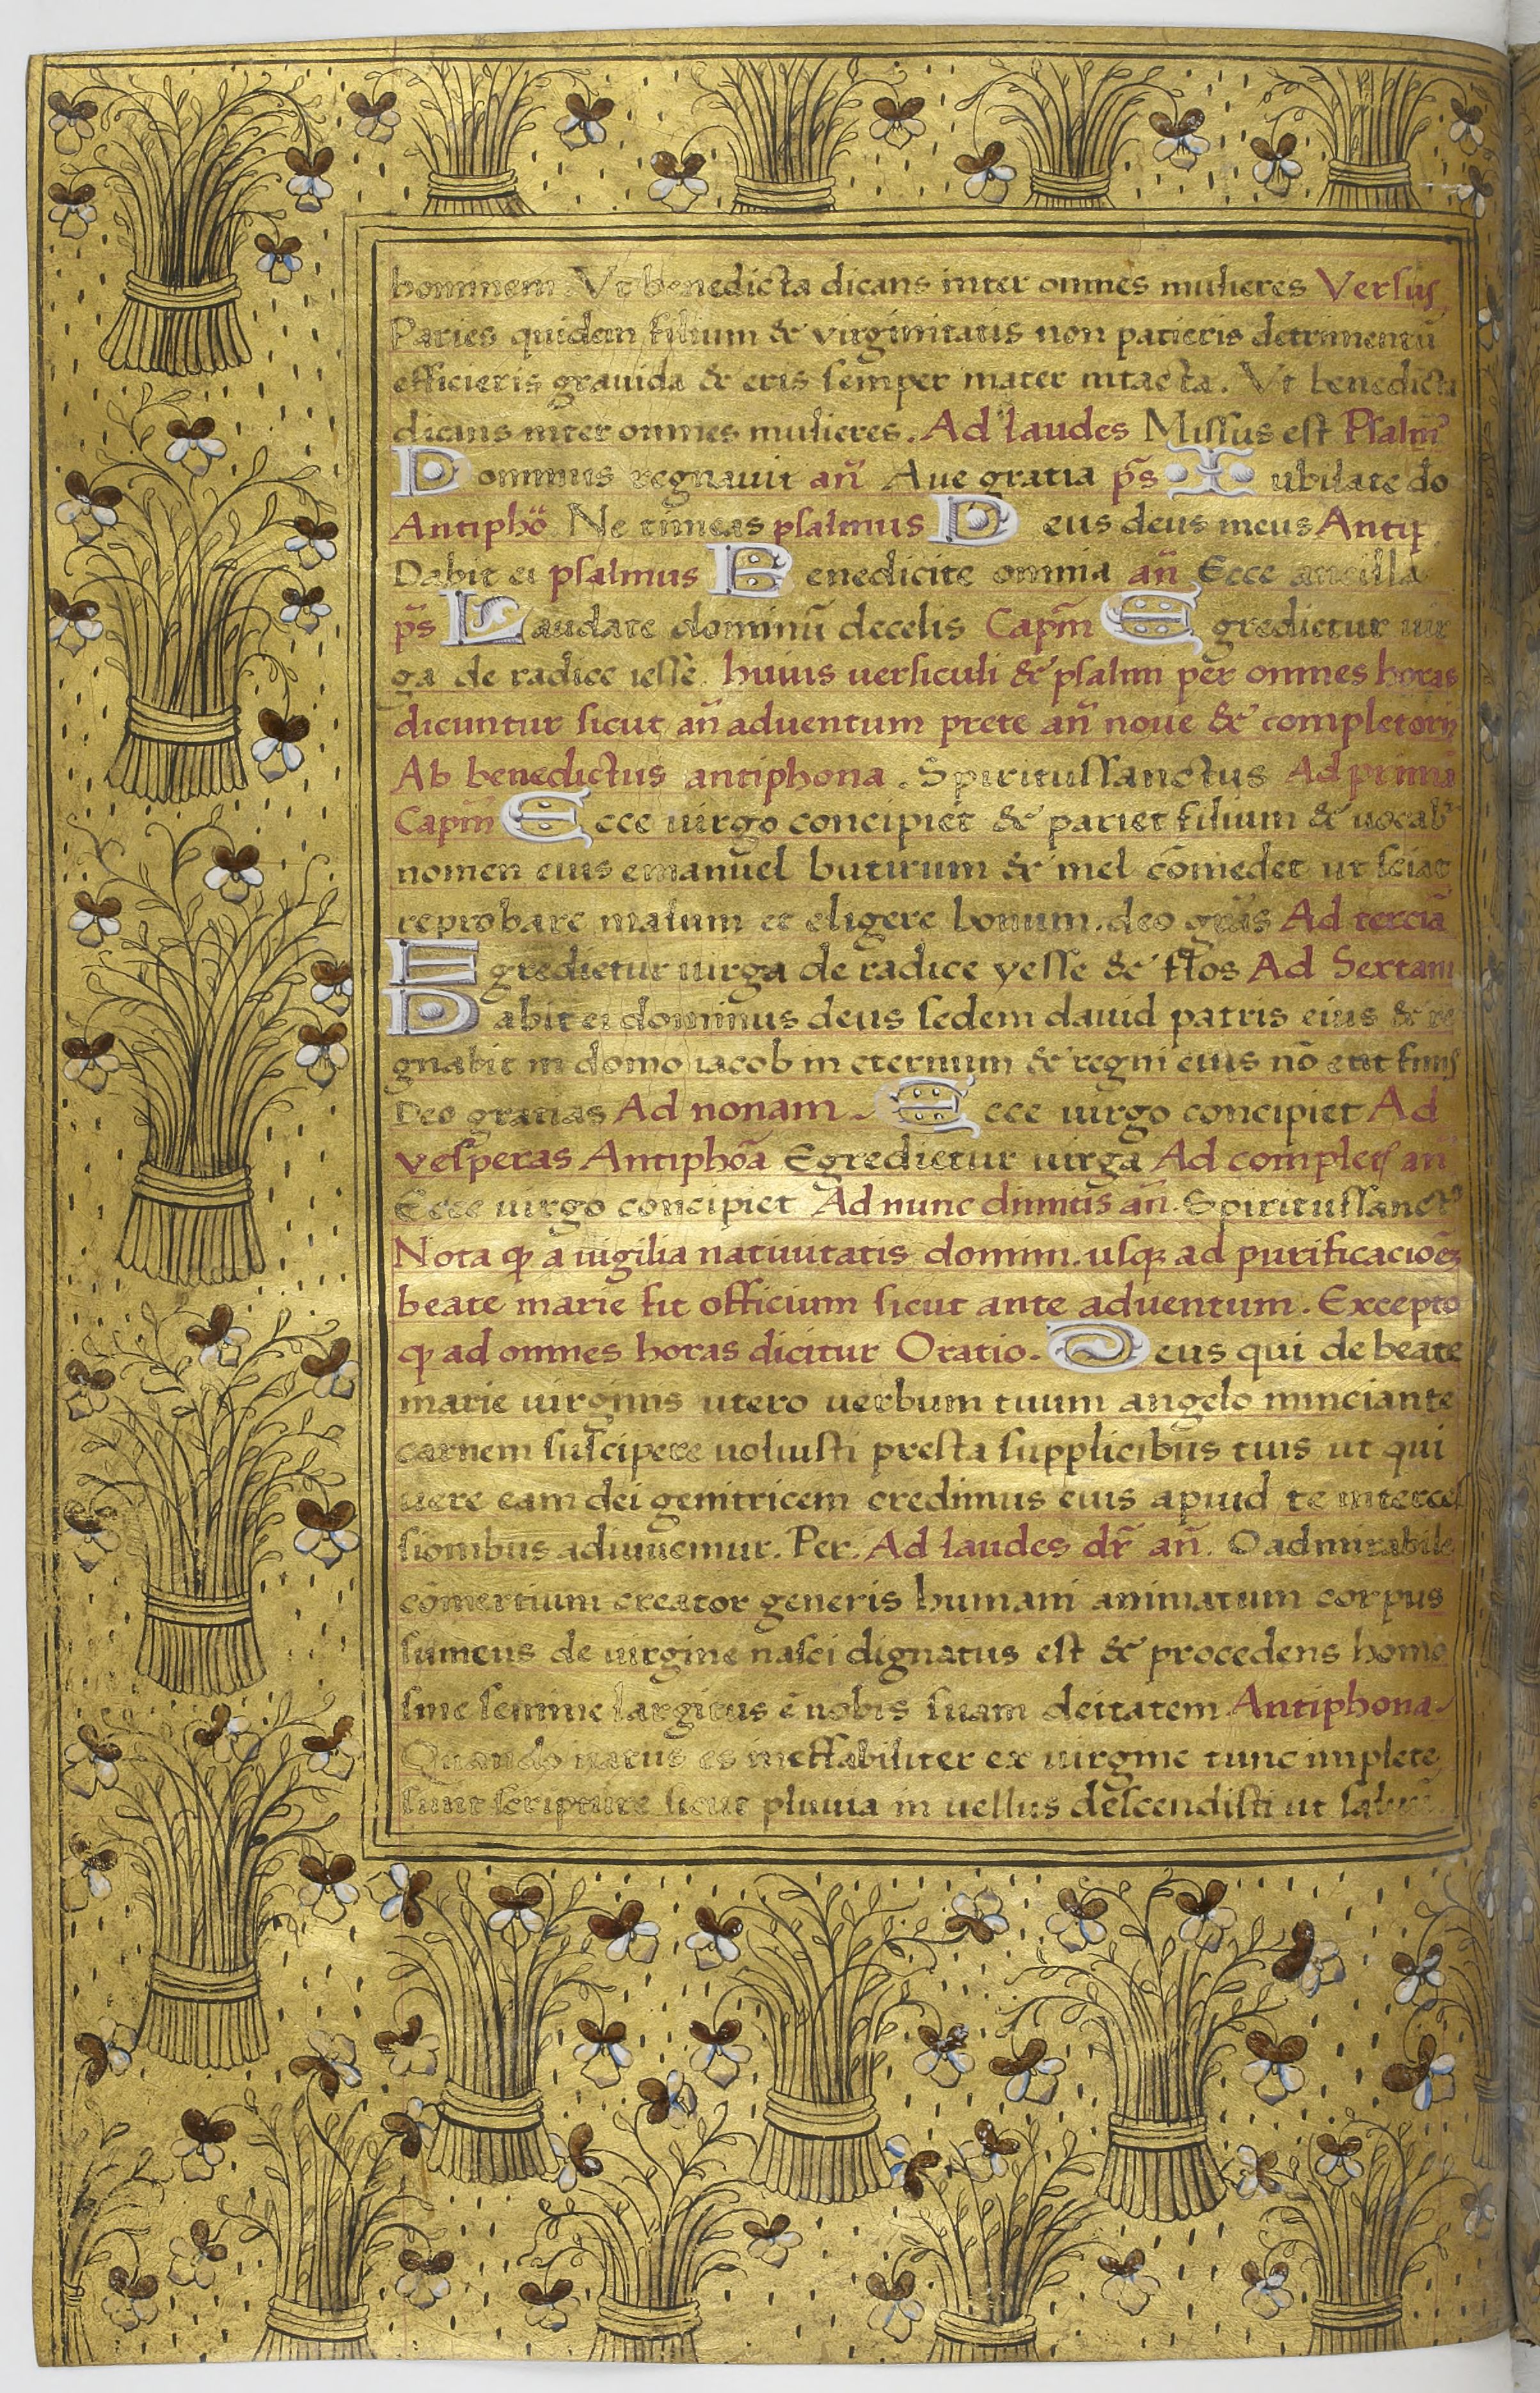 hominem Vt benedicta dicaris inter omnes mulieres Versus
Paries quidem filium & virginitatis non patieris detrimentũ
efficieris grauida & eris semper mater intacta. Vt benedicta
dicaris inter omnes mulieres. Ad laudes Missus est Psalm᷒
Dominus regnauit añ Aue gratia p̃s Iubilate do
Antiphõ Ne timeas psalmus Deus deus meus Antip
Dabit ei psalmus Benedicite omnia añ Ecce ancilla
p̃s Laudate dominũ decelis Capm̃ Egredietur uir
ga de radice iesse. huius uersiculi & psalmi per omnes horas
dicuntur sicut añ aduentum prete añ noue & completorij
Ab benedictus antiphona. Spiritussanctus Ad primã
Capm̃ Ecce uirgo concipiet & pariet filium & uocab᷒
nomen eius emanuel butirum & mel cõmedet ut sciat
reprobare malum et eligere bonum. deo gr̃as Ad terciã
Egredietur uirga de radice yesse & flos Ad Sextam
Dabit ei dominus deus sedem dauid patris eius & re
gnabit in domo iacob in eternum & regni eius nõ erit finis
Deo gratias Ad nonam Ecce uirgo concipiet Ad
vesperas Antiphõa Egredietur uirga Ad complet añ
Ecce uirgo concipiet Ad nunc dimitis añ. Spiritussanct᷒
Nota qp a uigilia natiuitatis domini. usq; ad purificaciõez
beate marie fit officium sicut ante aduentum. Excepto
qp ad omnes horas dicitur Oratio. Deus qui de beate
marie uirginis utero uerbum tuum angelo nunciante
carnem suscipere uoluisti presta supplicibus tuis ut qui
uere eam dei genitricem credimus eius apud te interces
sionibus adiuuemur. Per. Ad laudes dr̃ añ. O admirabile
cõmertium creator generis humani animatum corpus
sumens de uirgine nasci dignatus est & procedens homo
sine semine largitus ẽ nobis suam deitatem Antiphona
Quando natus es ineffabiliter ex uirgine tunc implete
sunt scripture sicut pluuia in uellus descendisti ut